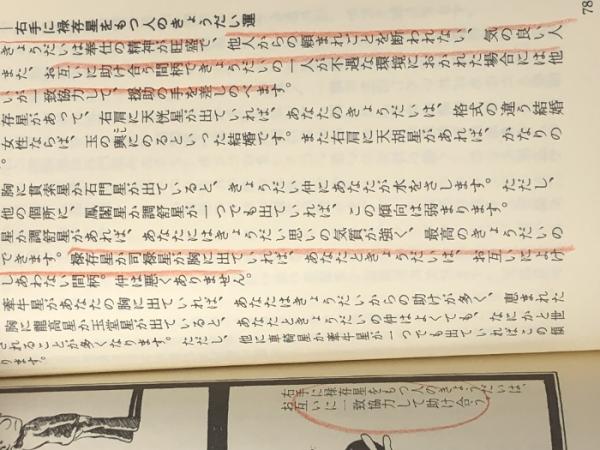 78
右手に禄存星をもつ人のきょうだい運
きょうだいは奉仕の精神が旺盛で、他人からの頼まれごとを断われない、気の良い人
また、お互いに助け合う間柄できょうだいの一人が不遇な環境におかれた場合には他
いが一致協力して、援助の手を差しのべます。
存星があって、右肩に天恍星が出ていれば、あなたのきょうだいは、格式の違う結婚
女性ならば、玉の輿にのるといった結婚です。また右肩に天胡星があれば、かなりの
。
胸に貫索星か石門星が出ていると、きょうだい仲にあなたが水をさします。ただし、
他の個所に、鳳閣星か調舒星が一つでも出ていれば、この傾向は弱まります。
星か調舒星があれば、あなたにはきょうだい思いの気質が強く、最高のきょうだいの
できます。禄存星か司禄星が胸に出ていれば、あなたときょうだいは、お互いによけ
しあわない間柄。仲は悪くありません。
牽牛星があなたの胸に出ていれば、あなたはきょうだいからの助けが多く、恵まれた
胸に龍高星か玉堂星が出ていると、あなたときょうだいの仲はよくても、なにかと世
されることが多くなります。ただし、他に車騎星か牽牛星が一つでも出ていればこの傾
ります。
右手に禄存星をもつ人のきょうだいは、
お互いに一致協力して助け合う